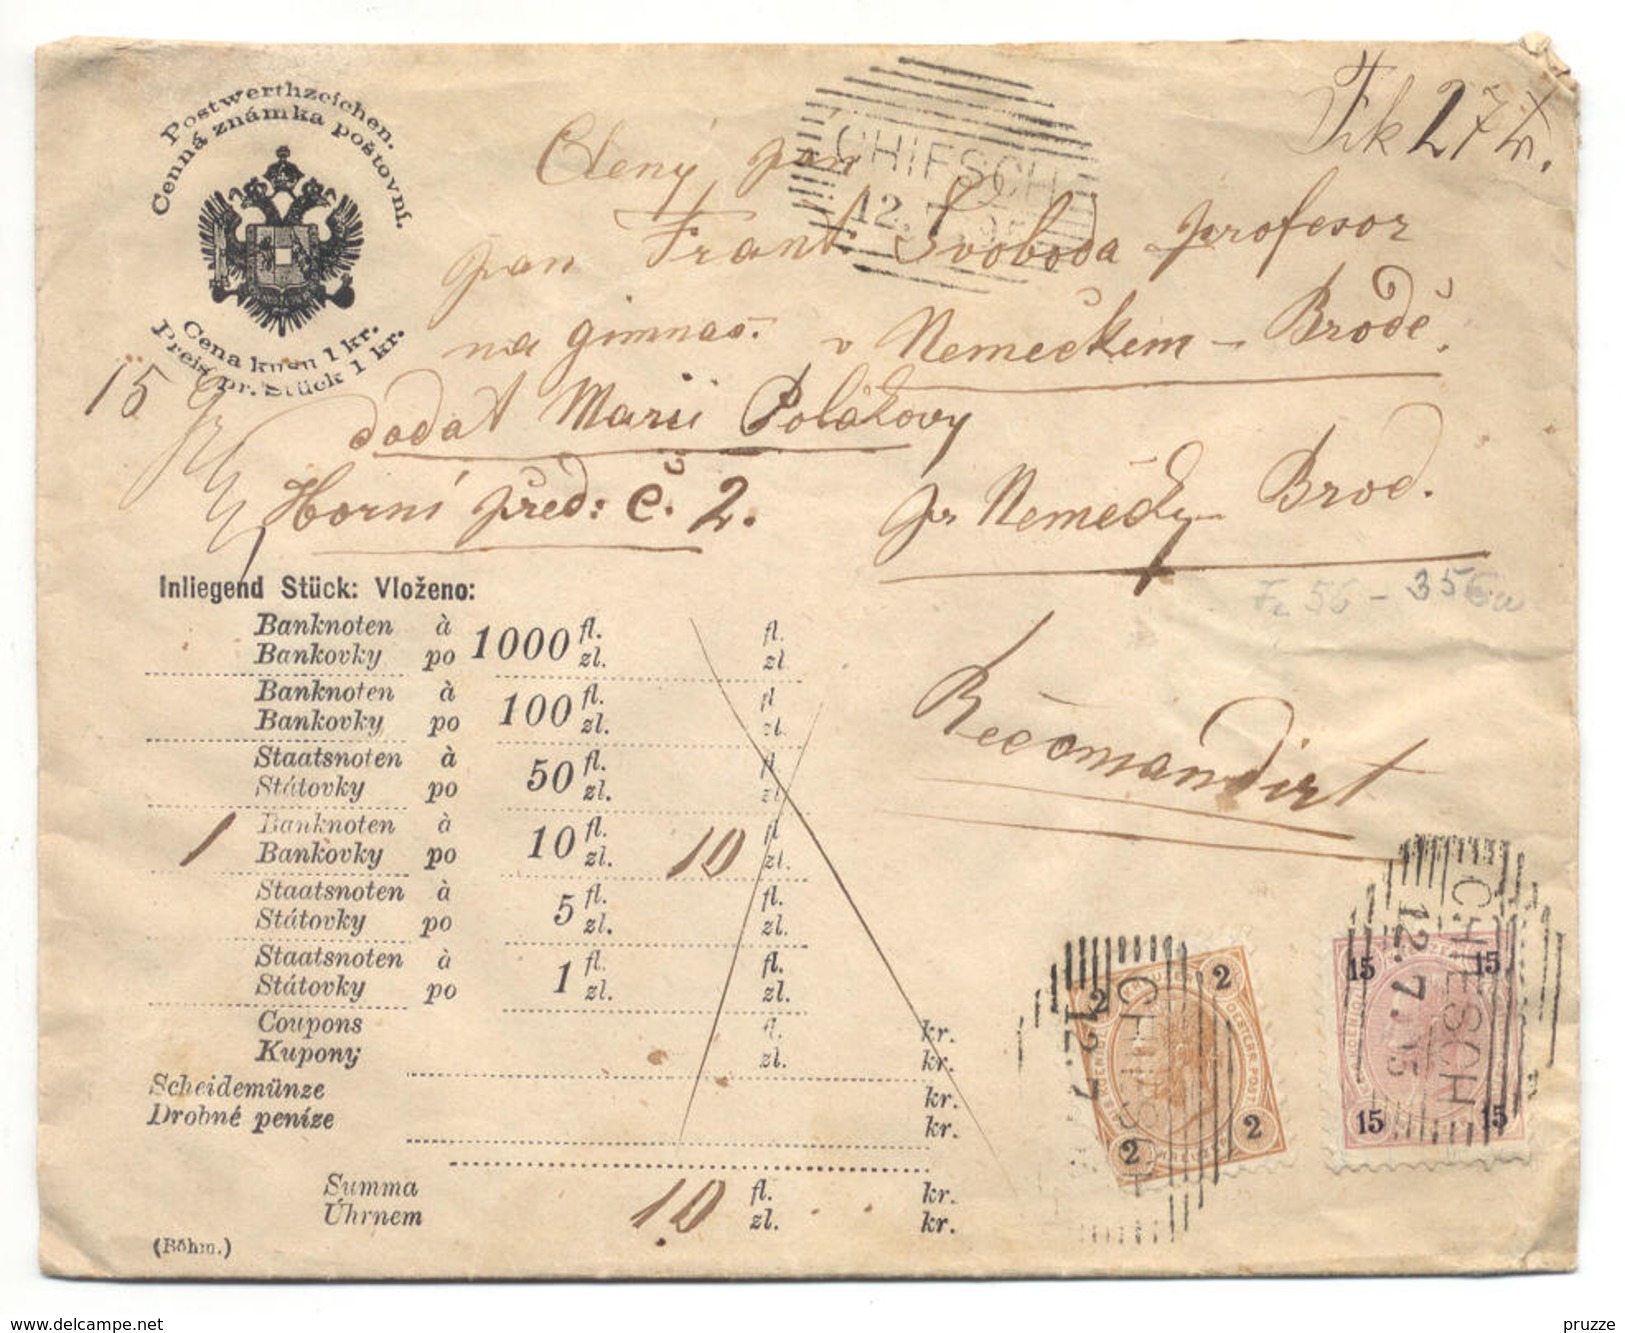 Postwerthzeichen.
Cenná známka poštovní.
Cena kusu 1 kr.
Preis pr. Stück 1 kr.
CHIESCH
12. 7. 95
27
Ctený pán
pan Frant. Svoboda profesor
na gimnas. v Německém-Brodě.
15
dodat Marii Polákovy
Horní před: č. 2. pr Německy-Brod.
Inliegend Stück: Vloženo:
Banknoten à 1000 fl. fl.
Bankovky po zl. zl.
Banknoten à 100 fl. fl
Bankovky po zl. zl.
Staatsnoten à 50 fl. fl
Státovky po zl. zl
1 Banknoten à 10 fl. 10 fl
Bankovky po zl. zl.
Staatsnoten à 5 fl. fl.
Státovky po zl. zl.
Staatsnoten à 1 fl. fl.
Státovky po zl. zl.
Coupons fl. kr.
Kupony zl. kr.
Scheidemünze kr.
Drobné peníze kr.
Summa 10 fl. kr.
Úhrnem zl. kr.
(Böhm.)
56 - 356
Rečomandirt
CHIESCH
12. 7
2 2 2 2
OESTERR. POST
CHIESCH
12. 7. 95
15 15 15 15
www.delcampe.net
pruzze